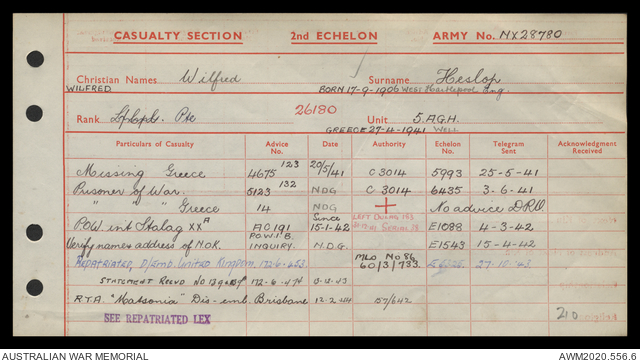 CASUALTY SECTION 2nd ECHELON ARMY No. NX28780
Christian Names Wilfred Surname Heslop
WILFRED BORN 17-9-1906 WEST Hartlepool Eng.
26180
Rank Pte Unit 5.A.G.H.
GREECE 27-4-1941 WELL
Particulars of Casualty Advice No. Date Authority Echelon No. Telegram Sent Acknowledgment Received
Missing Greece 4675 123 20/5/41 C 3014 5993 25-5-41
Prisoner of War. 5123 132 NDG C 3014 6435 3-6-41
" " " Greece 14 NDG + No advice D.R.O.
P.O.W. int Stalag XXA AC 191 Since 15-1-42 E1088 4-3-42
P.O.W.I.B.
Verify names address of N.O.K. INQUIRY. N.D.G. E1543 15-4-42
REPATRIATED, D/Emb. United Kingdom, 172-6-453. MLO No 86 60/3/733. 27-10-43
STATEMENT RECVD 172-6-474
R.T.A. "Matsonia" Dis-emb. Brisbane 12-2-44 157/642
SEE REPATRIATED LEX
210
AUSTRALIAN WAR MEMORIAL AWM2020.556.6